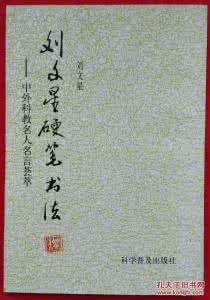 刘文星硬笔书法
——中外科教名人名言荟萃
刘文星
科学普及出版社